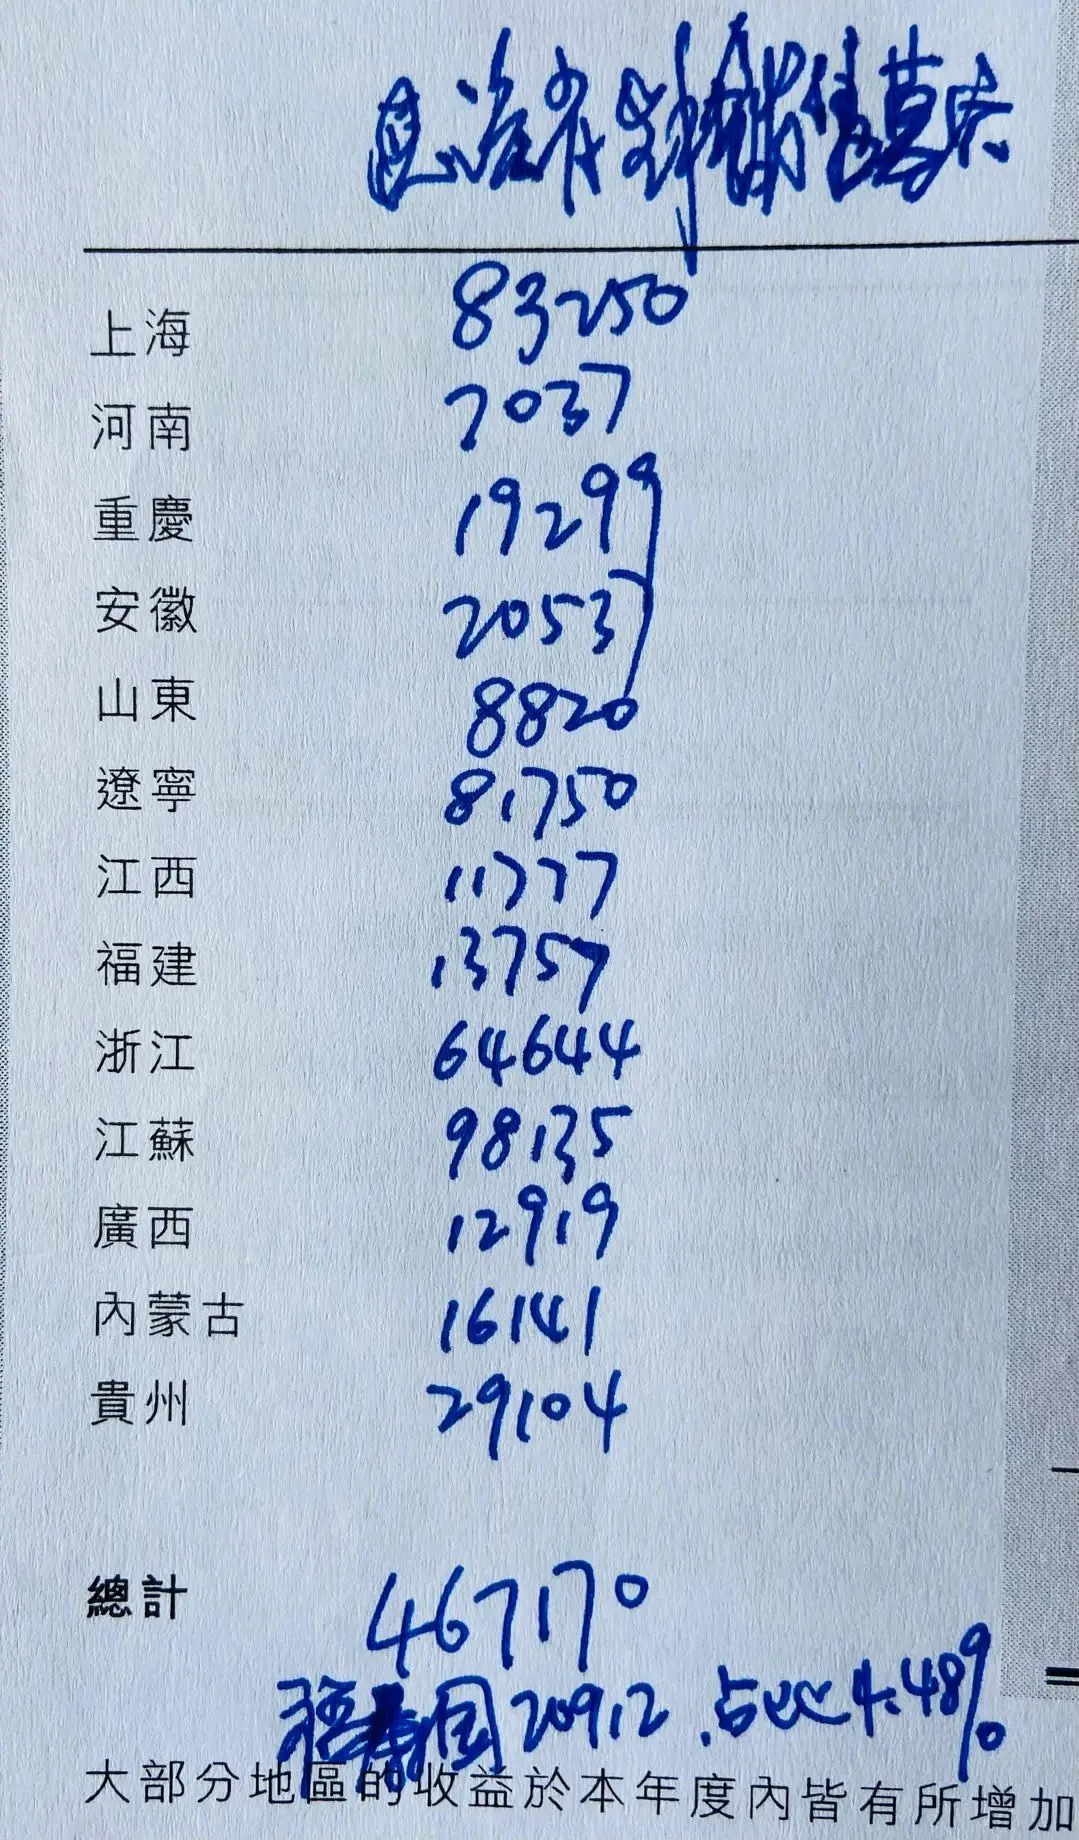 上海 83250
河南 7037
重慶 19299
安徽 20537
山東 8820
遼寧 81750
江西 11777
福建 13757
浙江 64644
江蘇 98135
廣西 12919
內蒙古 16141
貴州 29104
總計 467170
20912 占比 4.48%
大部分地區的收益於本年度內皆有所增加